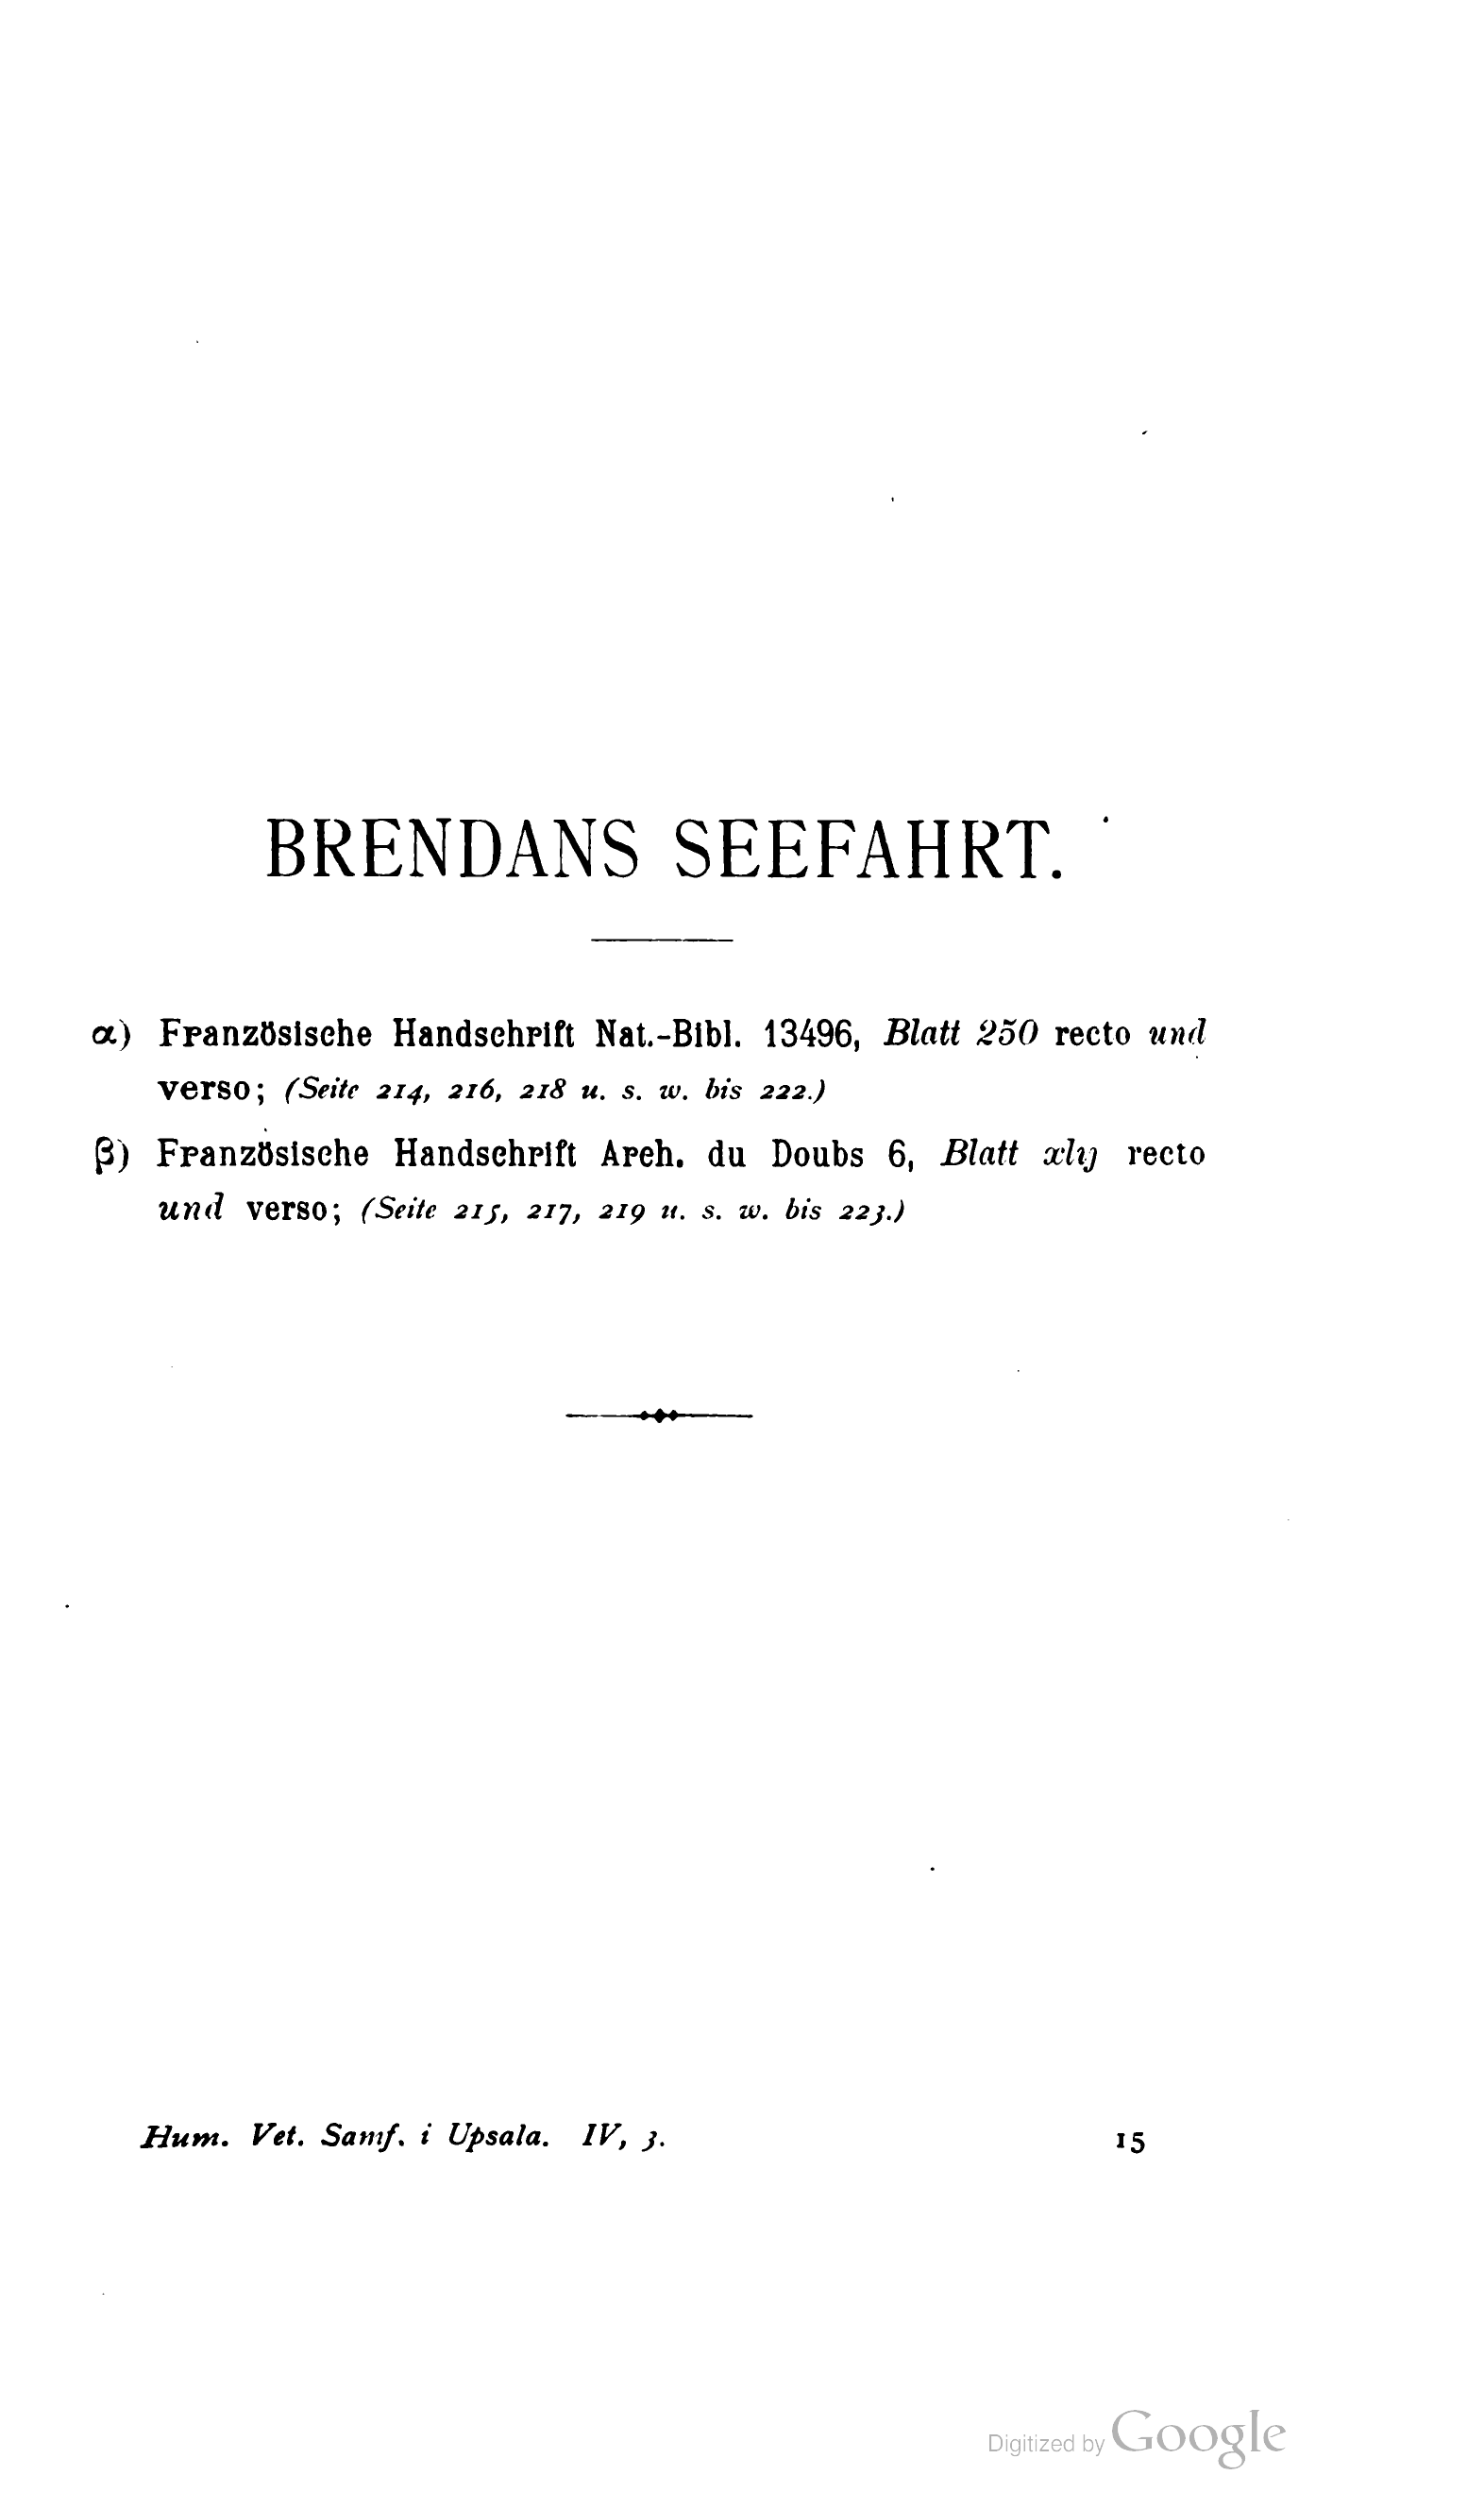 BRENDANS SEEFAHRT.
α) Französische Handschrift Nat.-Bibl. 13496, Blatt 250 recto und
verso; (Seite 214, 216, 218 u. s. w. bis 222.)
β) Französische Handschrift Arch. du Doubs 6, Blatt xlij recto
und verso; (Seite 215, 217, 219 u. s. w. bis 223.)
Hum. Vet. Samf. i Upsala. IV, 3. 15
Digitized by Google